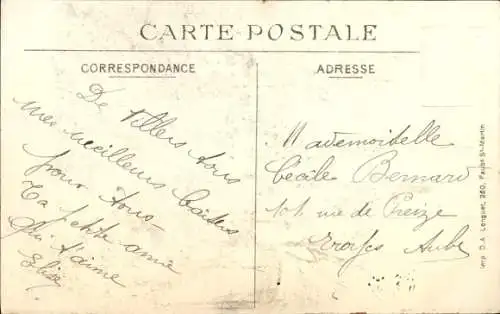 CARTE-POSTALE
CORRESPONDANCE
ADRESSE
De Villers tous
mes meilleurs baisers
pour tous
Ta petite amie
qui t'aime
Elise
Mademoiselle
Cécile Bernard
101 rue de Preize
Troyes Aube
Imp D.A. Longuet, 250, Faubg St-Martin